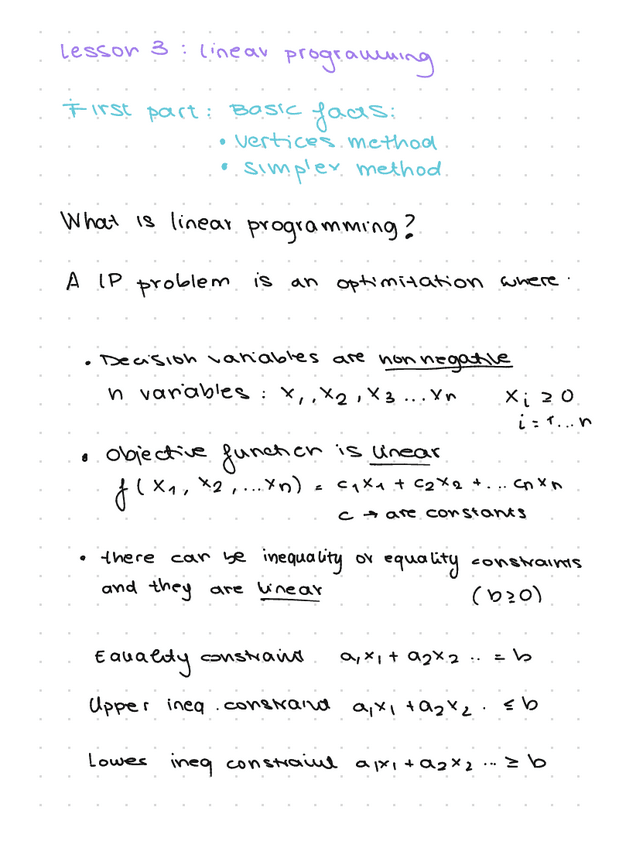 Lesson 3 : linear programming
First part: Basic facts:
• vertices method
• simplex method
What is linear programming?
A LP problem is an optimitation where
• Decision variables are nonnegative
n variables : x₁, x₂, x₃ ... xn   xᵢ ≥ 0
i = 1 ... n
• objective function is linear
f(x₁, x₂, ... xn) = c₁x₁ + c₂x₂ + ... cnxn
c → are constants
• there can be inequality or equality constraints
and they are linear   (b≥0)
Equality constraint   a₁x₁ + a₂x₂ .. = b
Upper ineq. constraint   a₁x₁ + a₂x₂ . ≤ b
Lower ineq constraint   a₁x₁ + a₂x₂ ... ≥ b